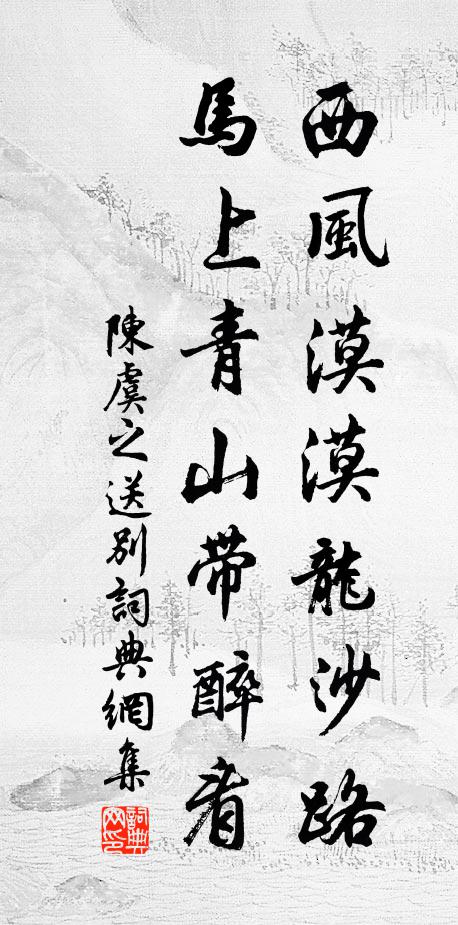 西風漠漠龍沙路
馬上青山帶醉看
陳虞之送別詞典網集
詞典網印